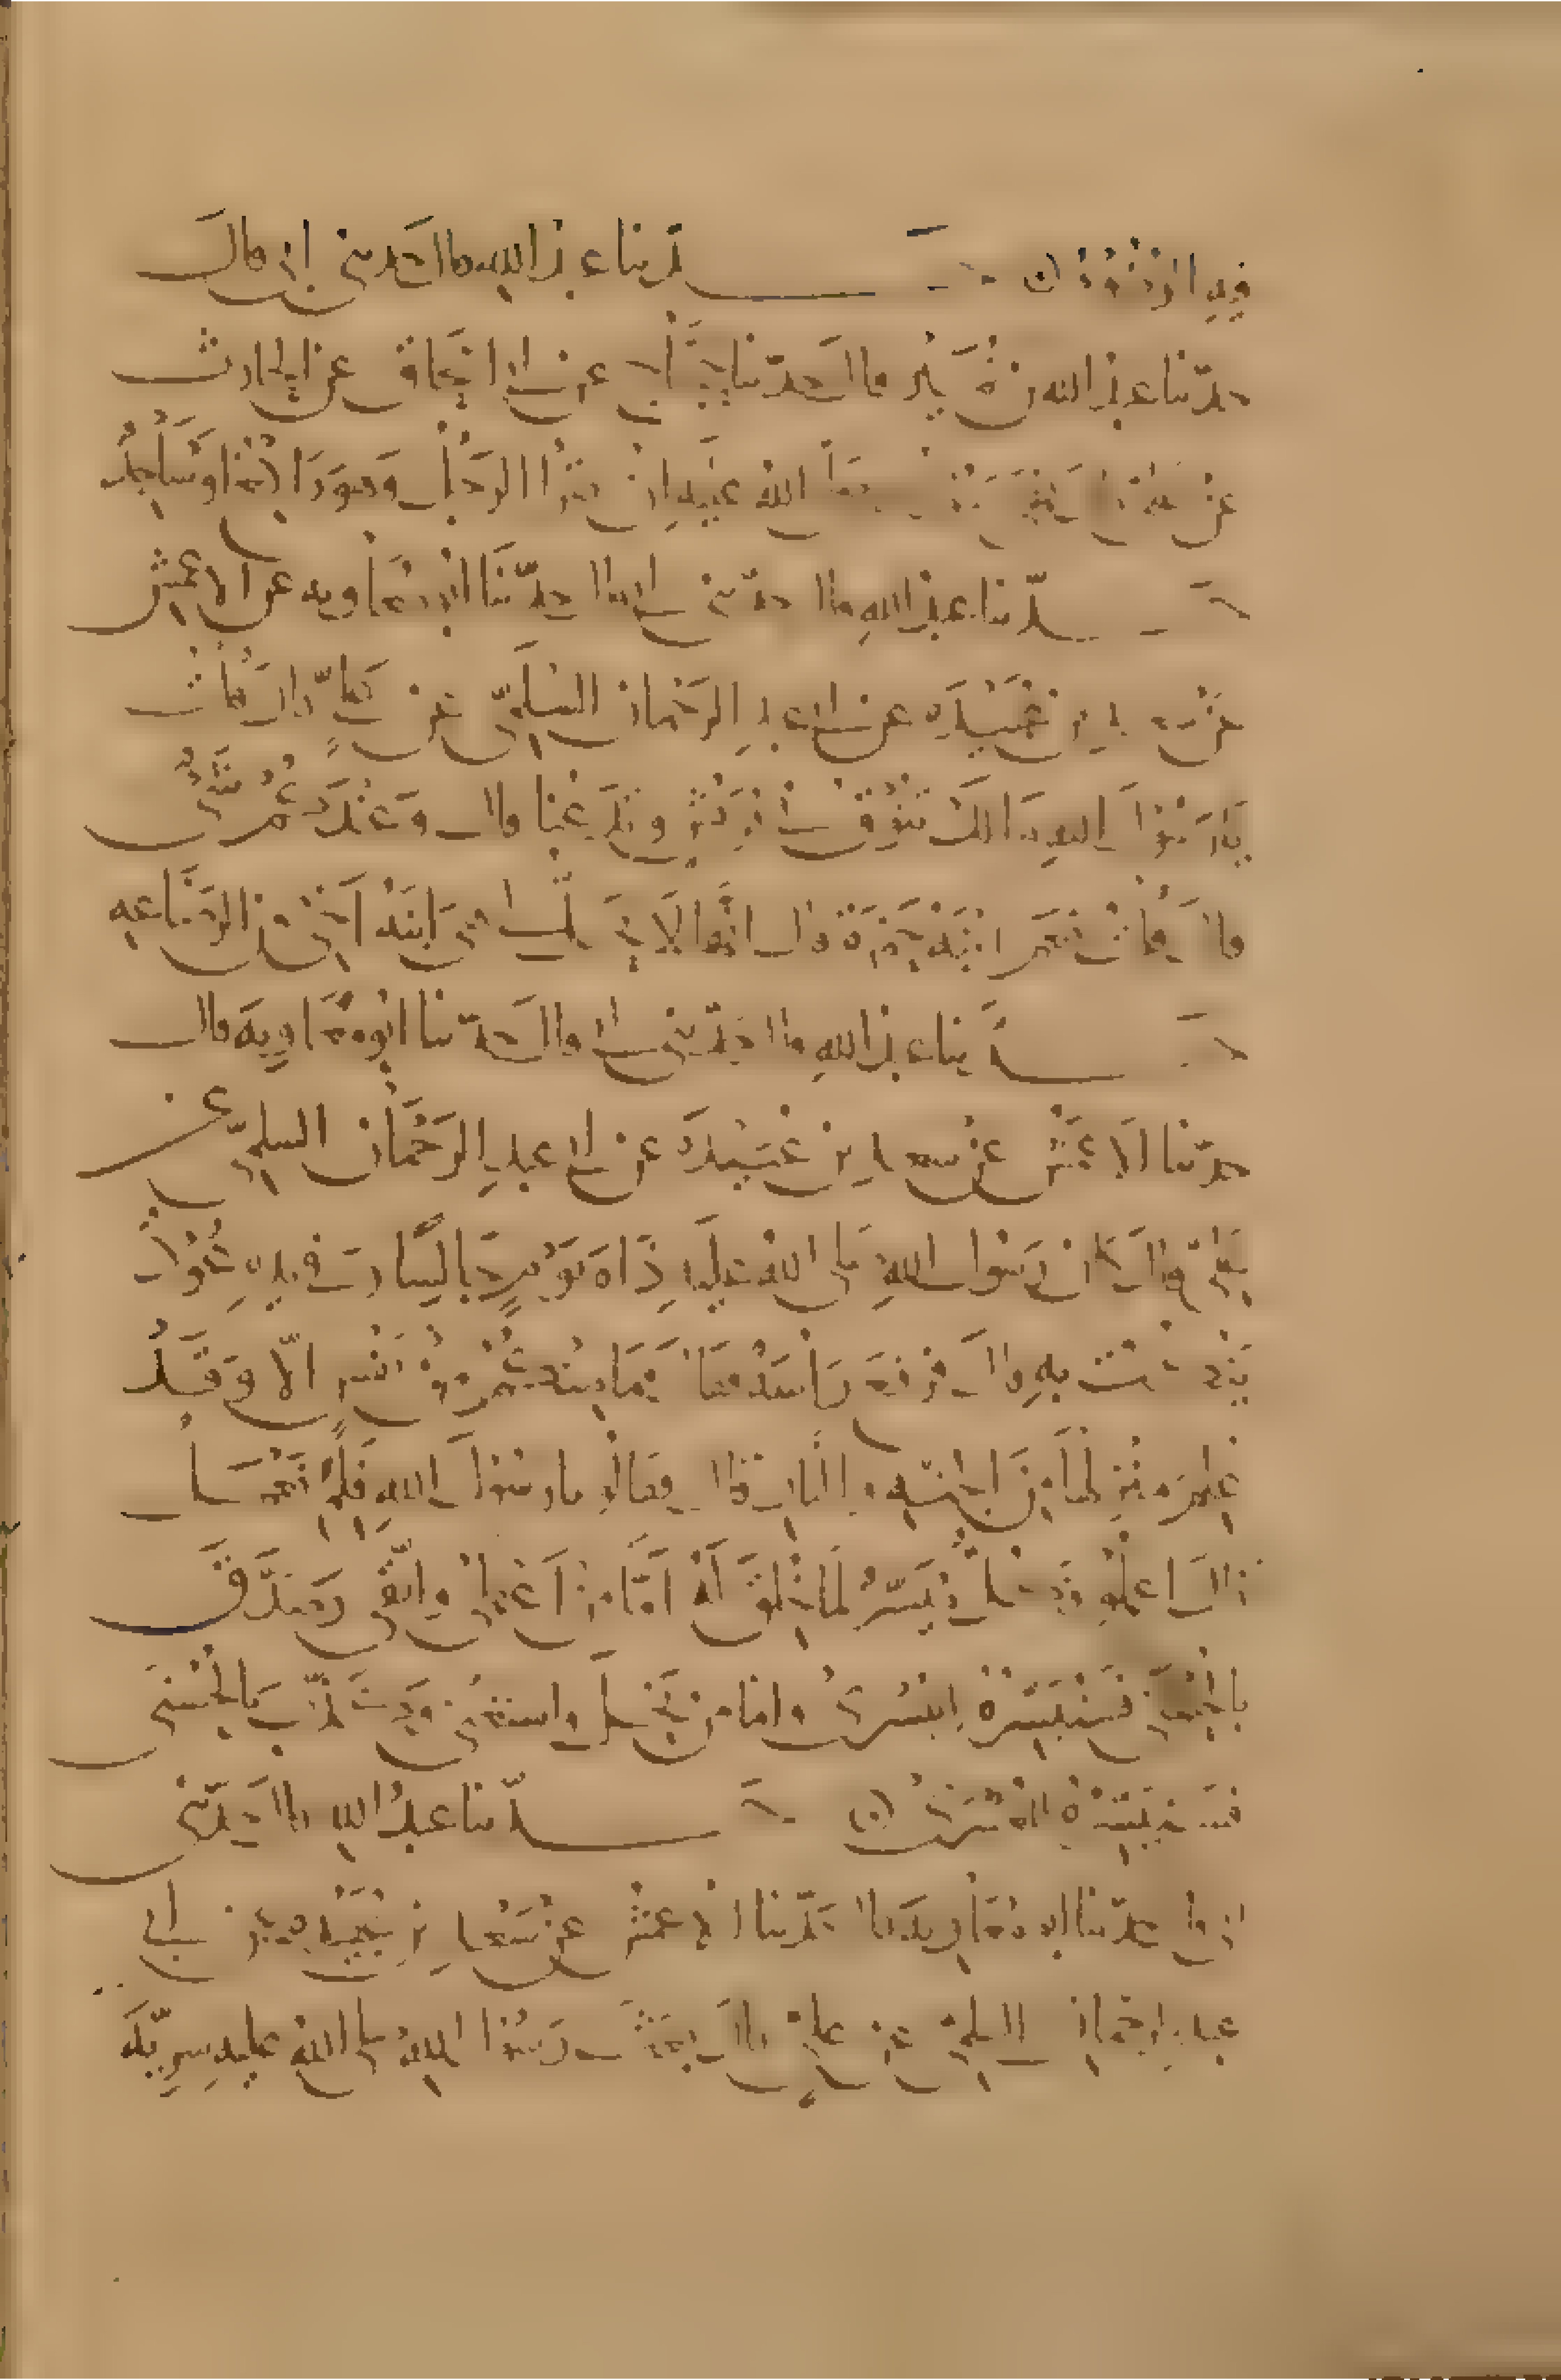 حدثنا عبد الله قال حدثني أبي قال
حدثنا عبد الله بن نمير قال حدثنا حجاج عن أبي إسحاق عن الحارث
عن علي الله عليه أن يقرأ الرجل وهو راكعا وساجد
حدثنا عبد الله قال حدثني أبي قال حدثنا أبو معاوية عن الأعمش
عن سعد بن عبيدة عن أبي عبد الرحمان السلمي عن علي قال قلت
يا رسول الله مالك تنوق في قريش وتدعنا قال وعندكم شيء
قال قلت نعم ابنة حمزة قال إنها لا تحل لي هي ابنة أخي من الرضاعه
حدثنا عبد الله قال حدثني أبي قال حدثنا أبو معاوية قال
حدثنا الأعمش عن سعد بن عبيدة عن أبي عبد الرحمان السلمي عن
علي قال كان رسول الله صلى الله عليه ذاة يوم جالسا وفي يده عود
ينكت به قال فرفع رأسه فقال ما منكم من نفس إلا وقد
علم منزلها من الجنه والنار قال فقالو يا رسول الله فلم نعمل
قال اعملو فكل ميسر لما خلق له أما من أعطى واتقى وصدق
بالحسنى فسنيسره لليسرى وأما من بخل واستغنى وكذب بالحسنى
فسنيسره للعسرى حدثنا عبد الله قال حدثني
أبي قال حدثنا أبو معاوية قال حدثنا الأعمش عن سعد بن عبيدة عن أبي
عبد الرحمان السلمي عن علي قال بعث رسول الله صلى الله عليه سرية